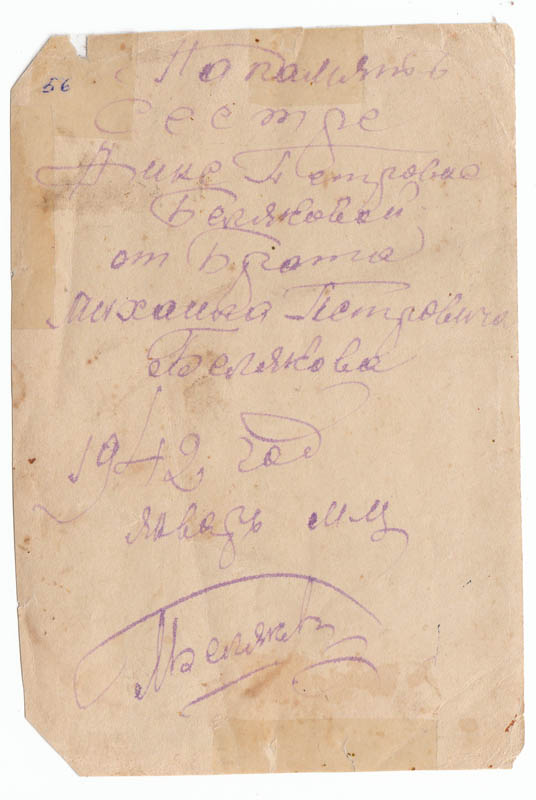 56
На память
сестре
Нине Петровне
Беляковой
от Брата
Михаила Петровича
Белякова
1942 год
январь мц
МБеляков